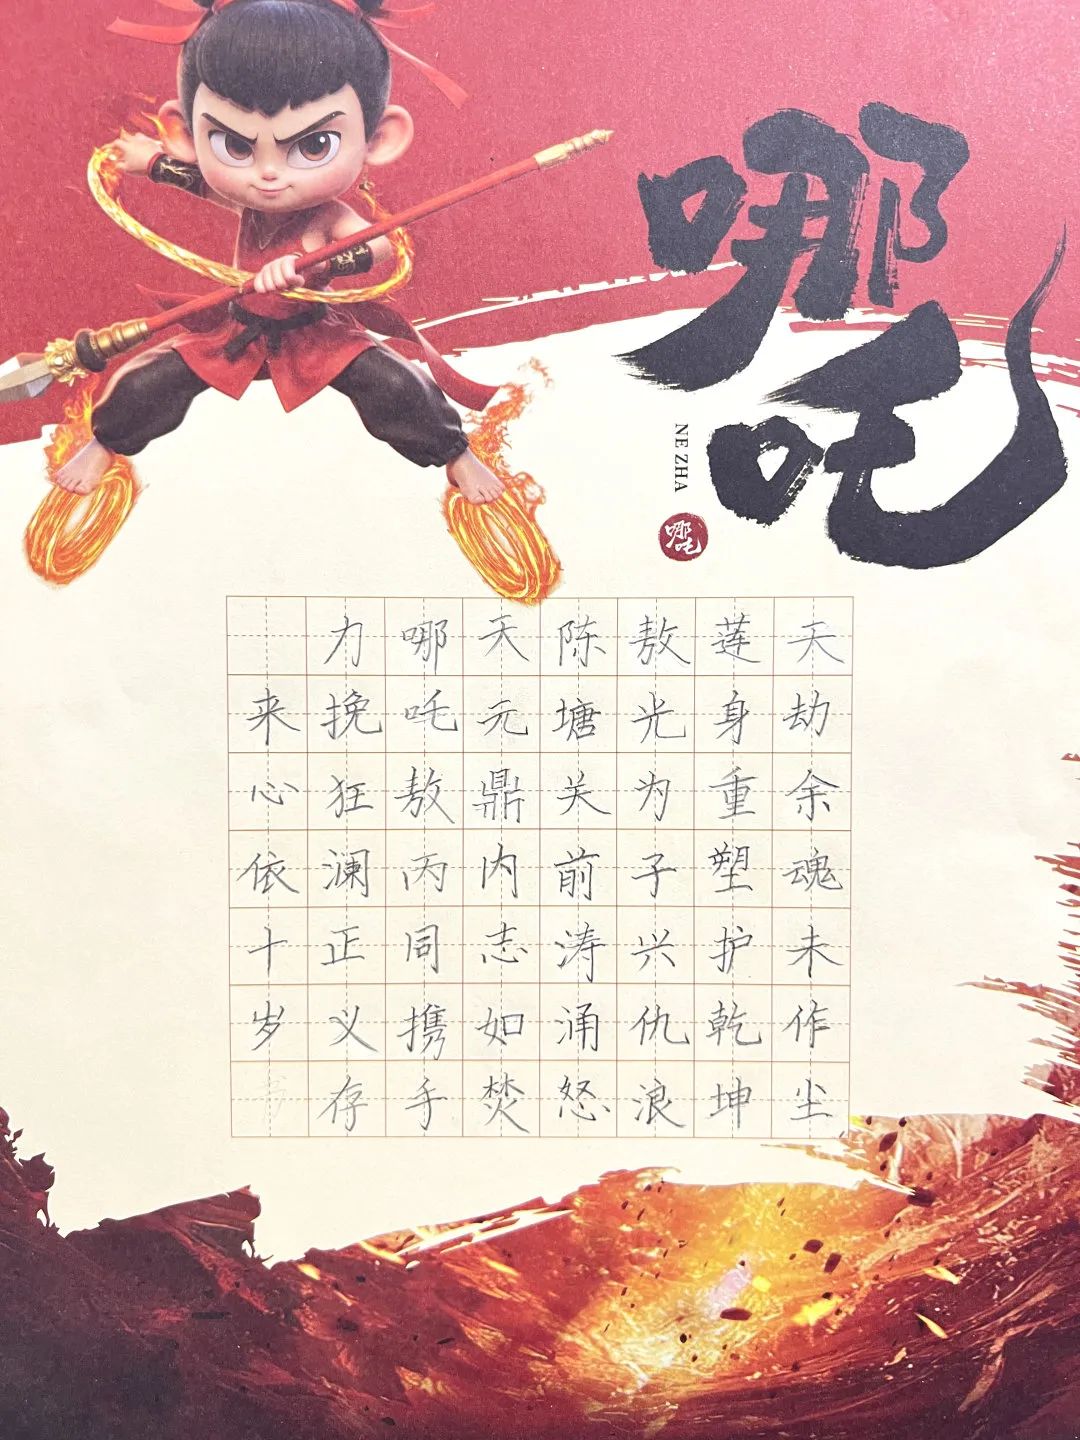 哪吒
NE ZHA
哪吒
天劫余魂未作尘
莲身重塑护乾坤
敖光为子兴仇浪
陈塘关前涛涌怒
天元鼎内志如焚
哪吒敖丙同携手
力挽狂澜正义存
来心依十岁